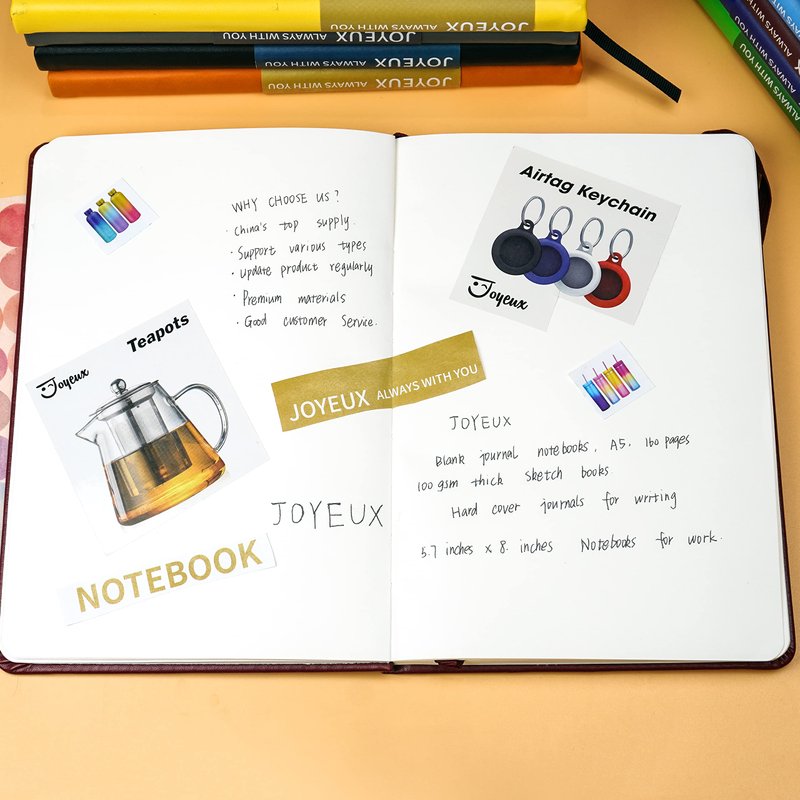 JOYEUX ALWAYS WITH YOU
JOYEUX ALWAYS WITH YOU
JOYEUX ALWAYS WITH YOU
JOYEUX ALWAYS WITH YOU
ALWAYS WITH YOU
ALWAYS WITH YOU
ALWAYS WITH YOU
WHY CHOOSE US?
· China's top supply.
· Support various types
· Update product regularly
· Premium materials
· Good customer Service.
Joyeux
Teapots
JOYEUX ALWAYS WITH YOU
JOYEUX
NOTEBOOK
Airtag Keychain
Joyeux
JOYEUX
Blank journal notebooks, A5, 160 pages
100 gsm thick Sketch books
Hard cover journals for writing
5.7 inches x 8. inches Notebooks for work.